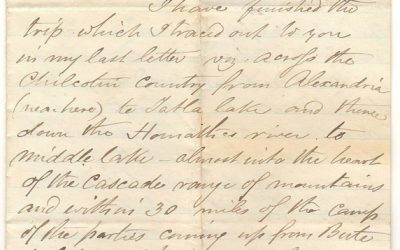 I have finished the
trip which I traced out to you
in my last letter viz. across the
Chilcotin Country from Alexandria
(near here) to Tatla lake and thence
down the Homathco river to
middle lake – almost into the heart
of the Cascade range of mountains
and within 30 miles of the camp
of the parties coming up from Bute